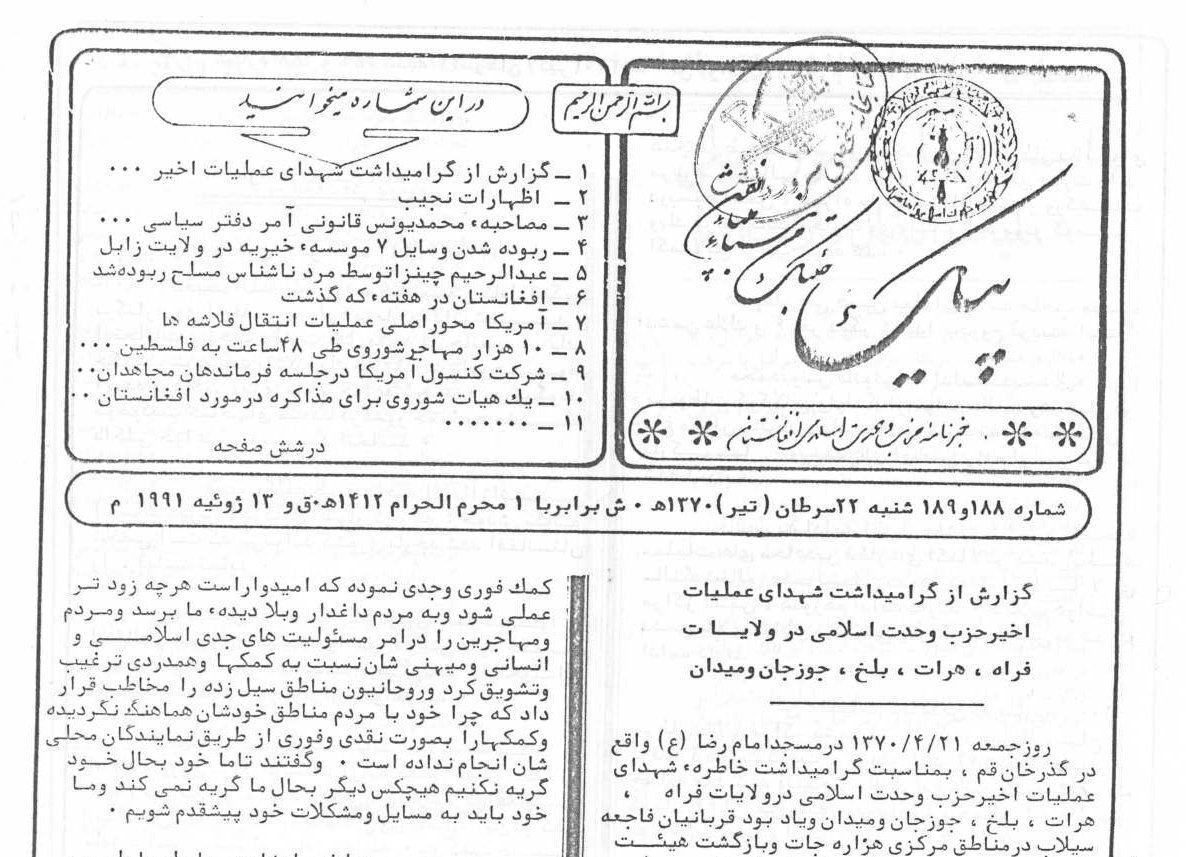 بسم الله الرحمن الرحیم
پیام
خبرنامه حزب وحدت اسلامی افغانستان
در این شماره میخوانید
۱ ــ گزارش از گرامیداشت شهدای عملیات اخیر ۰۰۰
۲ ــ اظهارات نجیب
۳ ــ مصاحبهٔ محمدیونس قانونی آمر دفتر سیاسی ۰۰۰
۴ ــ ربوده شدن وسایل ۷ موسسهٔ خیریه در ولایت زابل
۵ ــ عبدالرحیم چینزاتوسط مرد ناشناس مسلح ربوده‌شد
۶ ــ افغانستان در هفتهٔ که گذشت
۷ ــ آمریکا محوراصلی عملیات انتقال فلاشه ها
۸ ــ ۱۰ هزار مهاجرشوروی طی ۴۸ساعت به فلسطین ۰۰۰
۹ ــ شرکت کنسول آمریکا درجلسه فرماندهان مجاهدان۰۰
۱۰ ــ یك هیات شوروی برای مذاکره درمورد افغانستان ۰۰
۱۱ ــ ۰۰۰۰۰۰۰۰
درشش صفحه
شماره ۱۸۸و۱۸۹ شنبه ۲۲سرطان (تیر)۱۳۷۰هـ ۰ ش برابربا ۱ محرم الحرام ۱۴۱۲هـ۰ق و ۱۳ ژوئیه ۱۹۹۱ م
گزارش از گرامیداشت شهدای عملیات
اخیرحزب وحدت اسلامی در ولایـا ت
فراه ، هرات ، بلخ ، جوزجان ومیدان
روزجمعه ۱۳۷۰/۴/۲۱ درمسجدامام رضا (ع) واقع
در گذرخان قم ، بمناسبت گرامیداشت خاطرهٔ شهدای
عملیات اخیرحزب وحدت اسلامی درولایات فراه ،
هرات ، بلخ ، جوزجان ومیدان ویاد بود قربانیان فاجعه
سیلاب درمناطق مرکزی هزاره جات وبازگشت هیئــت
کمك فوری وجدی نموده که امیدواراست هرچه زود تـر
عملی شود وبه مردم داغدار وبلا دیدهٔ ما برسد ومـردم
ومهاجرین را درامر مسئولیت های جدی اسلامــی و
انسانی ومیهنی شان نسبت به کمکها وهمدردی ترغیب
وتشویق کرد وروحانیون مناطق سیل زده را مخاطب قرار
داد که چرا خود با مردم مناطق خودشان هماهنگ نگردیده
وکمکهارا بصورت نقدی وفوری از طریق نمایندگان محلی
شان انجام نداده است ۰ وگفتند تاما خود بحال خــود
گریه نکنیم هیچکس دیگر بحال ما گریه نمی کند ومـا
خود باید به مسایل ومشکلات خود پیشقدم شویم ۰